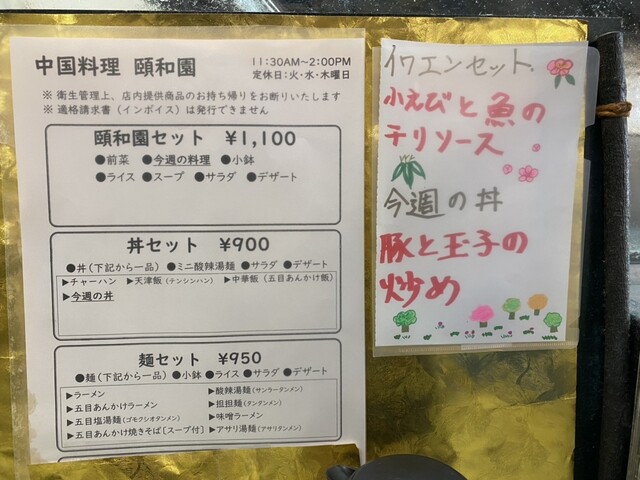 中国料理 頤和園
11:30AM～2:00PM
定休日:火・水・木曜日
※ 衛生管理上、店内提供商品のお持ち帰りをお断りいたします
※ 適格請求書（インボイス）は発行できません
頤和園セット ¥1,100
●前菜 ●今週の料理 ●小鉢
●ライス ●スープ ●サラダ ●デザート
丼セット ¥900
●丼(下記から一品) ●ミニ酸辣湯麺 ●サラダ ●デザート
▶チャーハン ▶天津飯(テンシンハン) ▶中華飯(五目あんかけ飯)
▶今週の丼
麺セット ¥950
●麺(下記から一品) ●小鉢 ●ライス ●サラダ ●デザート
▶ラーメン
▶五目あんかけラーメン
▶五目塩湯麺(ゴモクシオタンメン)
▶五目あんかけ焼きそば[スープ付]
▶酸辣湯麺(サンラータンメン)
▶担担麺(タンタンメン)
▶味噌ラーメン
▶アサリ湯麺(アサリタンメン)
イワエンセット.
小えびと魚の
チリソース
今週の丼
豚と玉子の
炒め